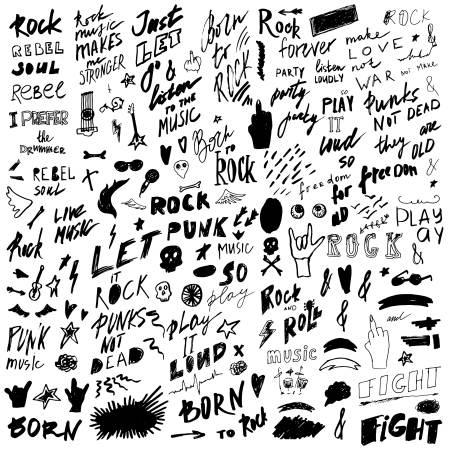 ROCK
REBEL
SOUL
REBEL
I PREFER
the
DRUMMER
REBEL
SOUL
Rock
music
MAKES
me
STRONGER
Just
LET
go &
listen
TO THE
MUSIC
Born
to
ROCK
Rock
forever
PARTY
listen
LOUDLY
party
party
ROCK
make
LOVE
not
WAR
NOT MAKE
Punks
NOT DEAD
they are
OLD
SO
PLAY
IT
loud
SO
freedom
for
freedom
&
Born
to
ROCK
LIVE
MUSIC
Rock
LET
IT
ROCK
ROCK
PUNK
MUSIC
SO
play
PLAY
ROCK
&
&
Rock
AND
ROLL
&
&
and
PUNK
music
PUNKS
NOT
DEAD
play
IT
LOUD
x
music
FIGHT
BORN
BORN
TO Rock
&
FIGHT